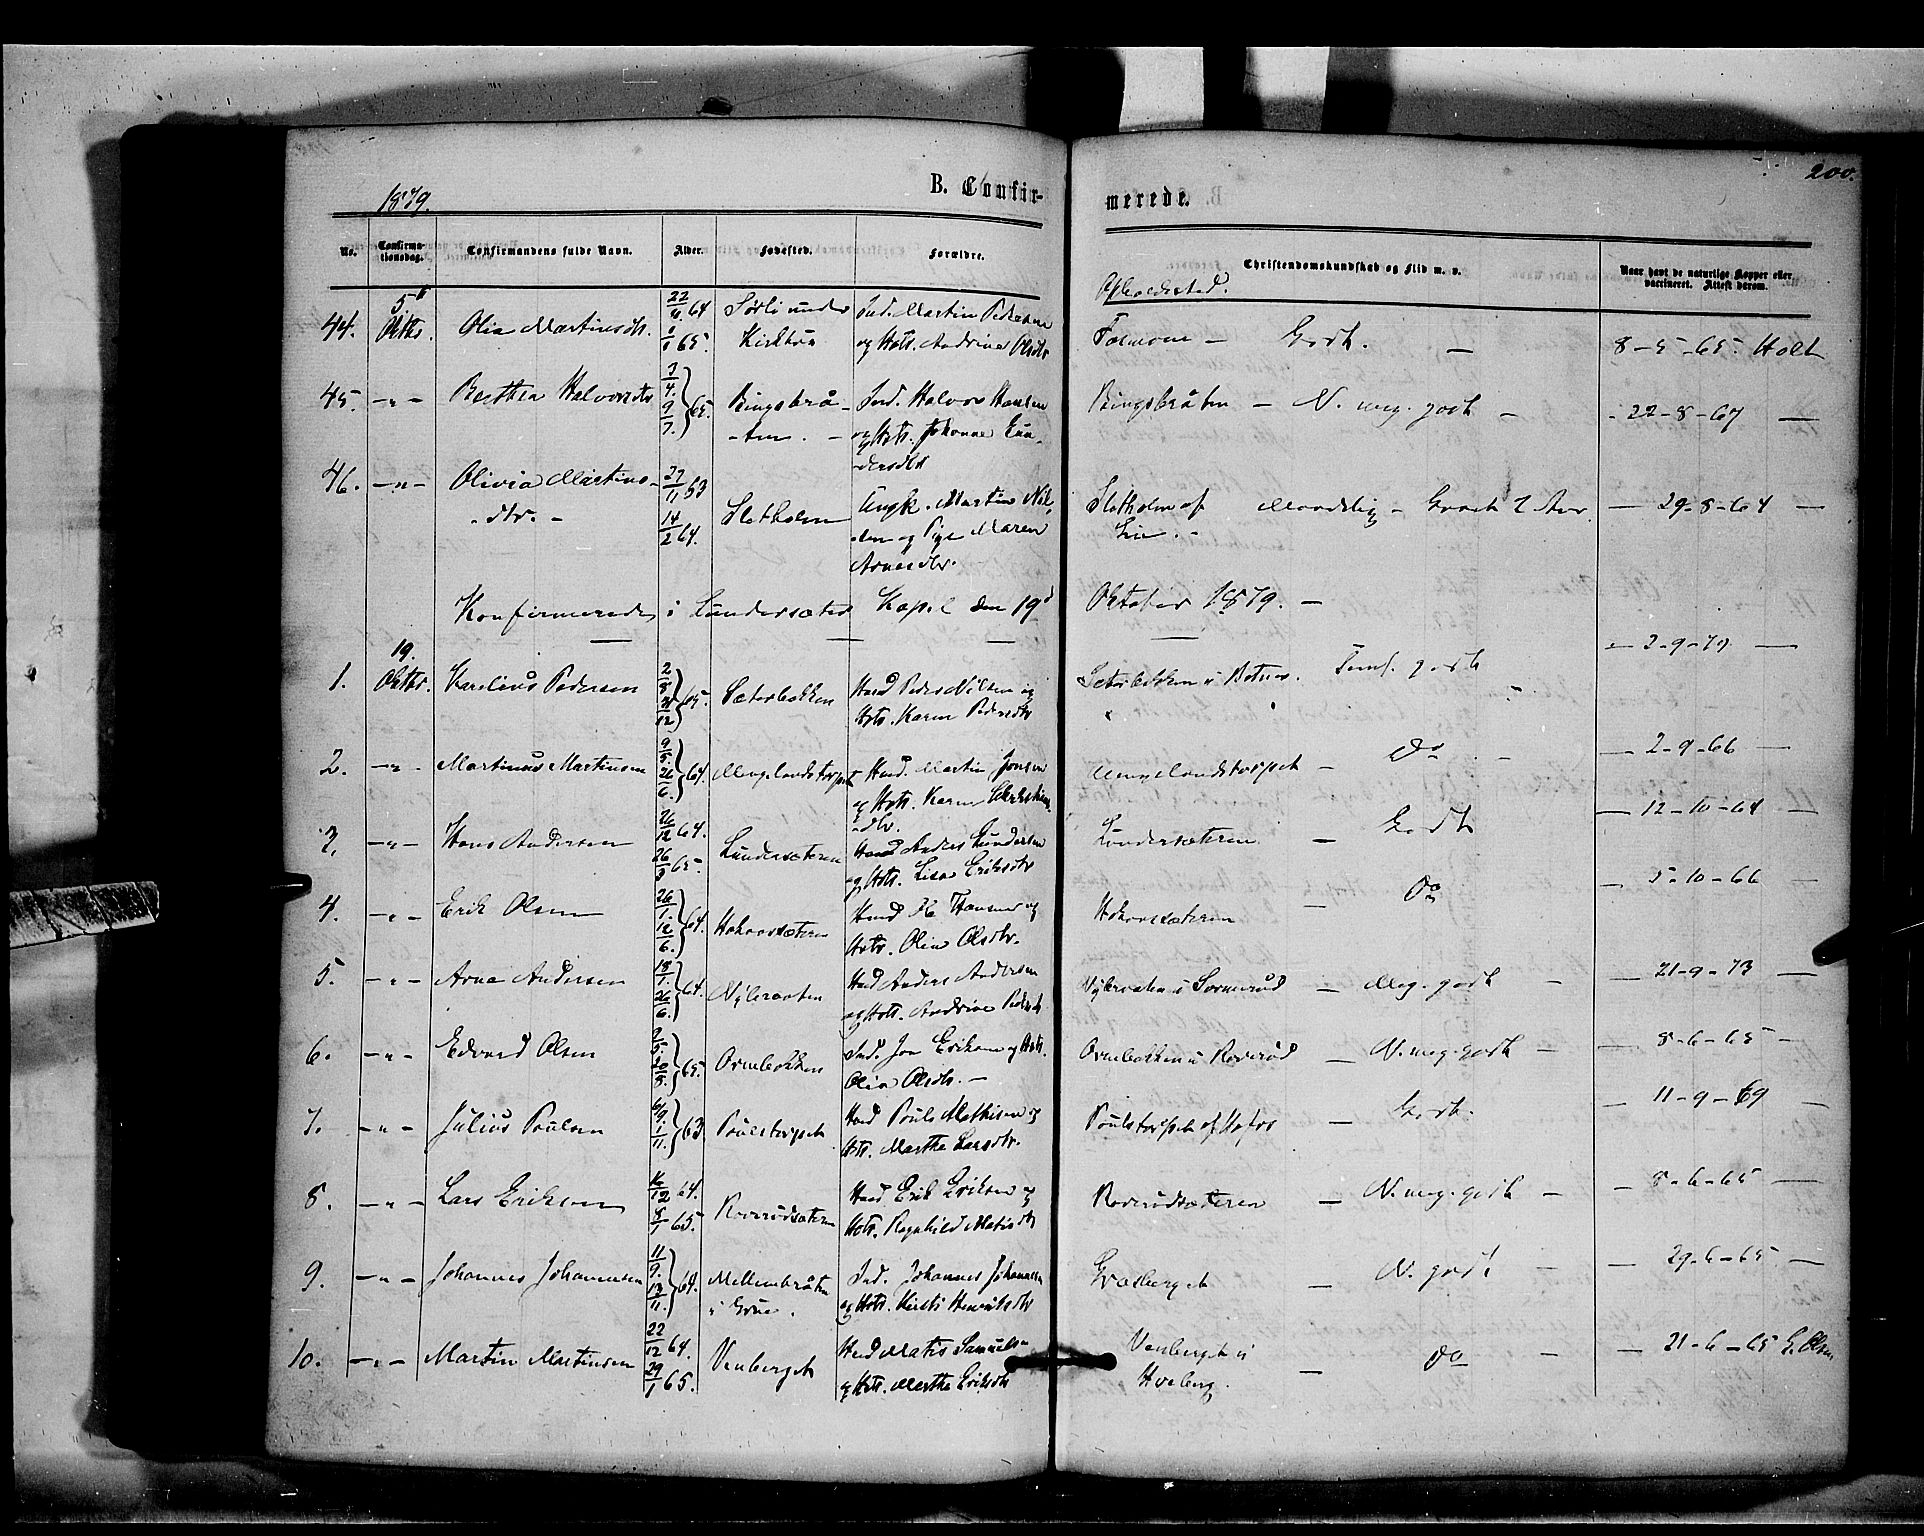 200.
1879.
B. Confir-
merede.
No. Confirmationsdag. Confirmandens fulde Navn. Alder. Fødested. Forældre. Christendomskundskab og Flid m. v. Naar havt de naturlige Kopper eller vaccineret. Attest derom.
Opholdssted.
44. 5te Oktbr. Olia Martinsdtr. 22/11 64 1/1 65. Sørli under Ind. Martin Pedersen og Hstr. Andrine Olsdtr Godt. 8-5-65 Holt
45. -"- Berthea Halvorsdtr 3/4 9/7 65. Bingsbråten Ind. Halvor Hansen og Hstr. Johanne Gundersdtr Bingsbråten - N. meg. godt - 22-8-67
46. -"- Olivia Martinsdtr. 27/11 63 14/2 64. Slotholm Ungk. Martin og Pige Maren Arnesdtr. Slotholm af Lie. - Maadelig - 29-8-64
Konfirmerede i Lundersæter Kapel den 19d Oktober 1879.
1. 19. Oktbr. Karelius Pedersen 65. Sæterbakken Husd Peder Nilsen og Hstr. Karen Pedersdtr Sæterbakken godt 2-9-70
2. -"- Martinus Martinsen 9/5 26/6 64. Mengelandstorpet Husd. Martin Jonsen og Hstr. Karen Mengelandstorpet - Do - 2-9-66
3. -"- Hans Andersen 26/12 64. 26/3 65. Lundersæteren Husd Anders Gundersen og Hstr. Lisa Eriksdtr Lundersæteren - Godt 12-10-64
4. -"- Erik Olsen 26/1 12/6 64. Haavsæteren Husd Ol Hansen og Hstr. Olia Olsdtr. - Do 5-10-66
5. -"- Arne Andersen 18/1 26/6 64. Nybraaten Husd Anders Andersen og Hstr. Andrine Pedersdtr Nybraaten - Meg. godt - 21-9-73
6. -"- Edvard Olsen 65. Ormbakken Ind. Jon Eriksen og Hstr. Olia Olsdtr. - Ormbakken i Roverud - N. meg. godt - 8-6-65
7. -"- Julius Poulsen 6/9 1/11 63 Poulstorpet Husd Poul Mathisen og Hstr. Marthe Larsdtr. Poulstorpet af - Godt. 11-9-69
8. -"- Lars Eriksen 16/12 64. 8/1 65. Roverudsæteren Husd Erik Eriksen og Hstr. Ragnhild Matisdtr Roverudsæteren - N. meg. godt - 8-6-65
9. -"- Johannes Johannesen 11/9 13/11 64. Mellembråten i Grue. Ind. Johannes Johannesen og Hstr. Kirsti Henriksdtr Græsberget - N. godt - 29-6-65
10. -"- Martin Martinsen 22/12 64. 29/1 65. Venberget Husd Matis Samuelsen og Hstr. Marthe Eriksdtr Venberget i Hveberg. - Do - 21-6-65 G. Olsen